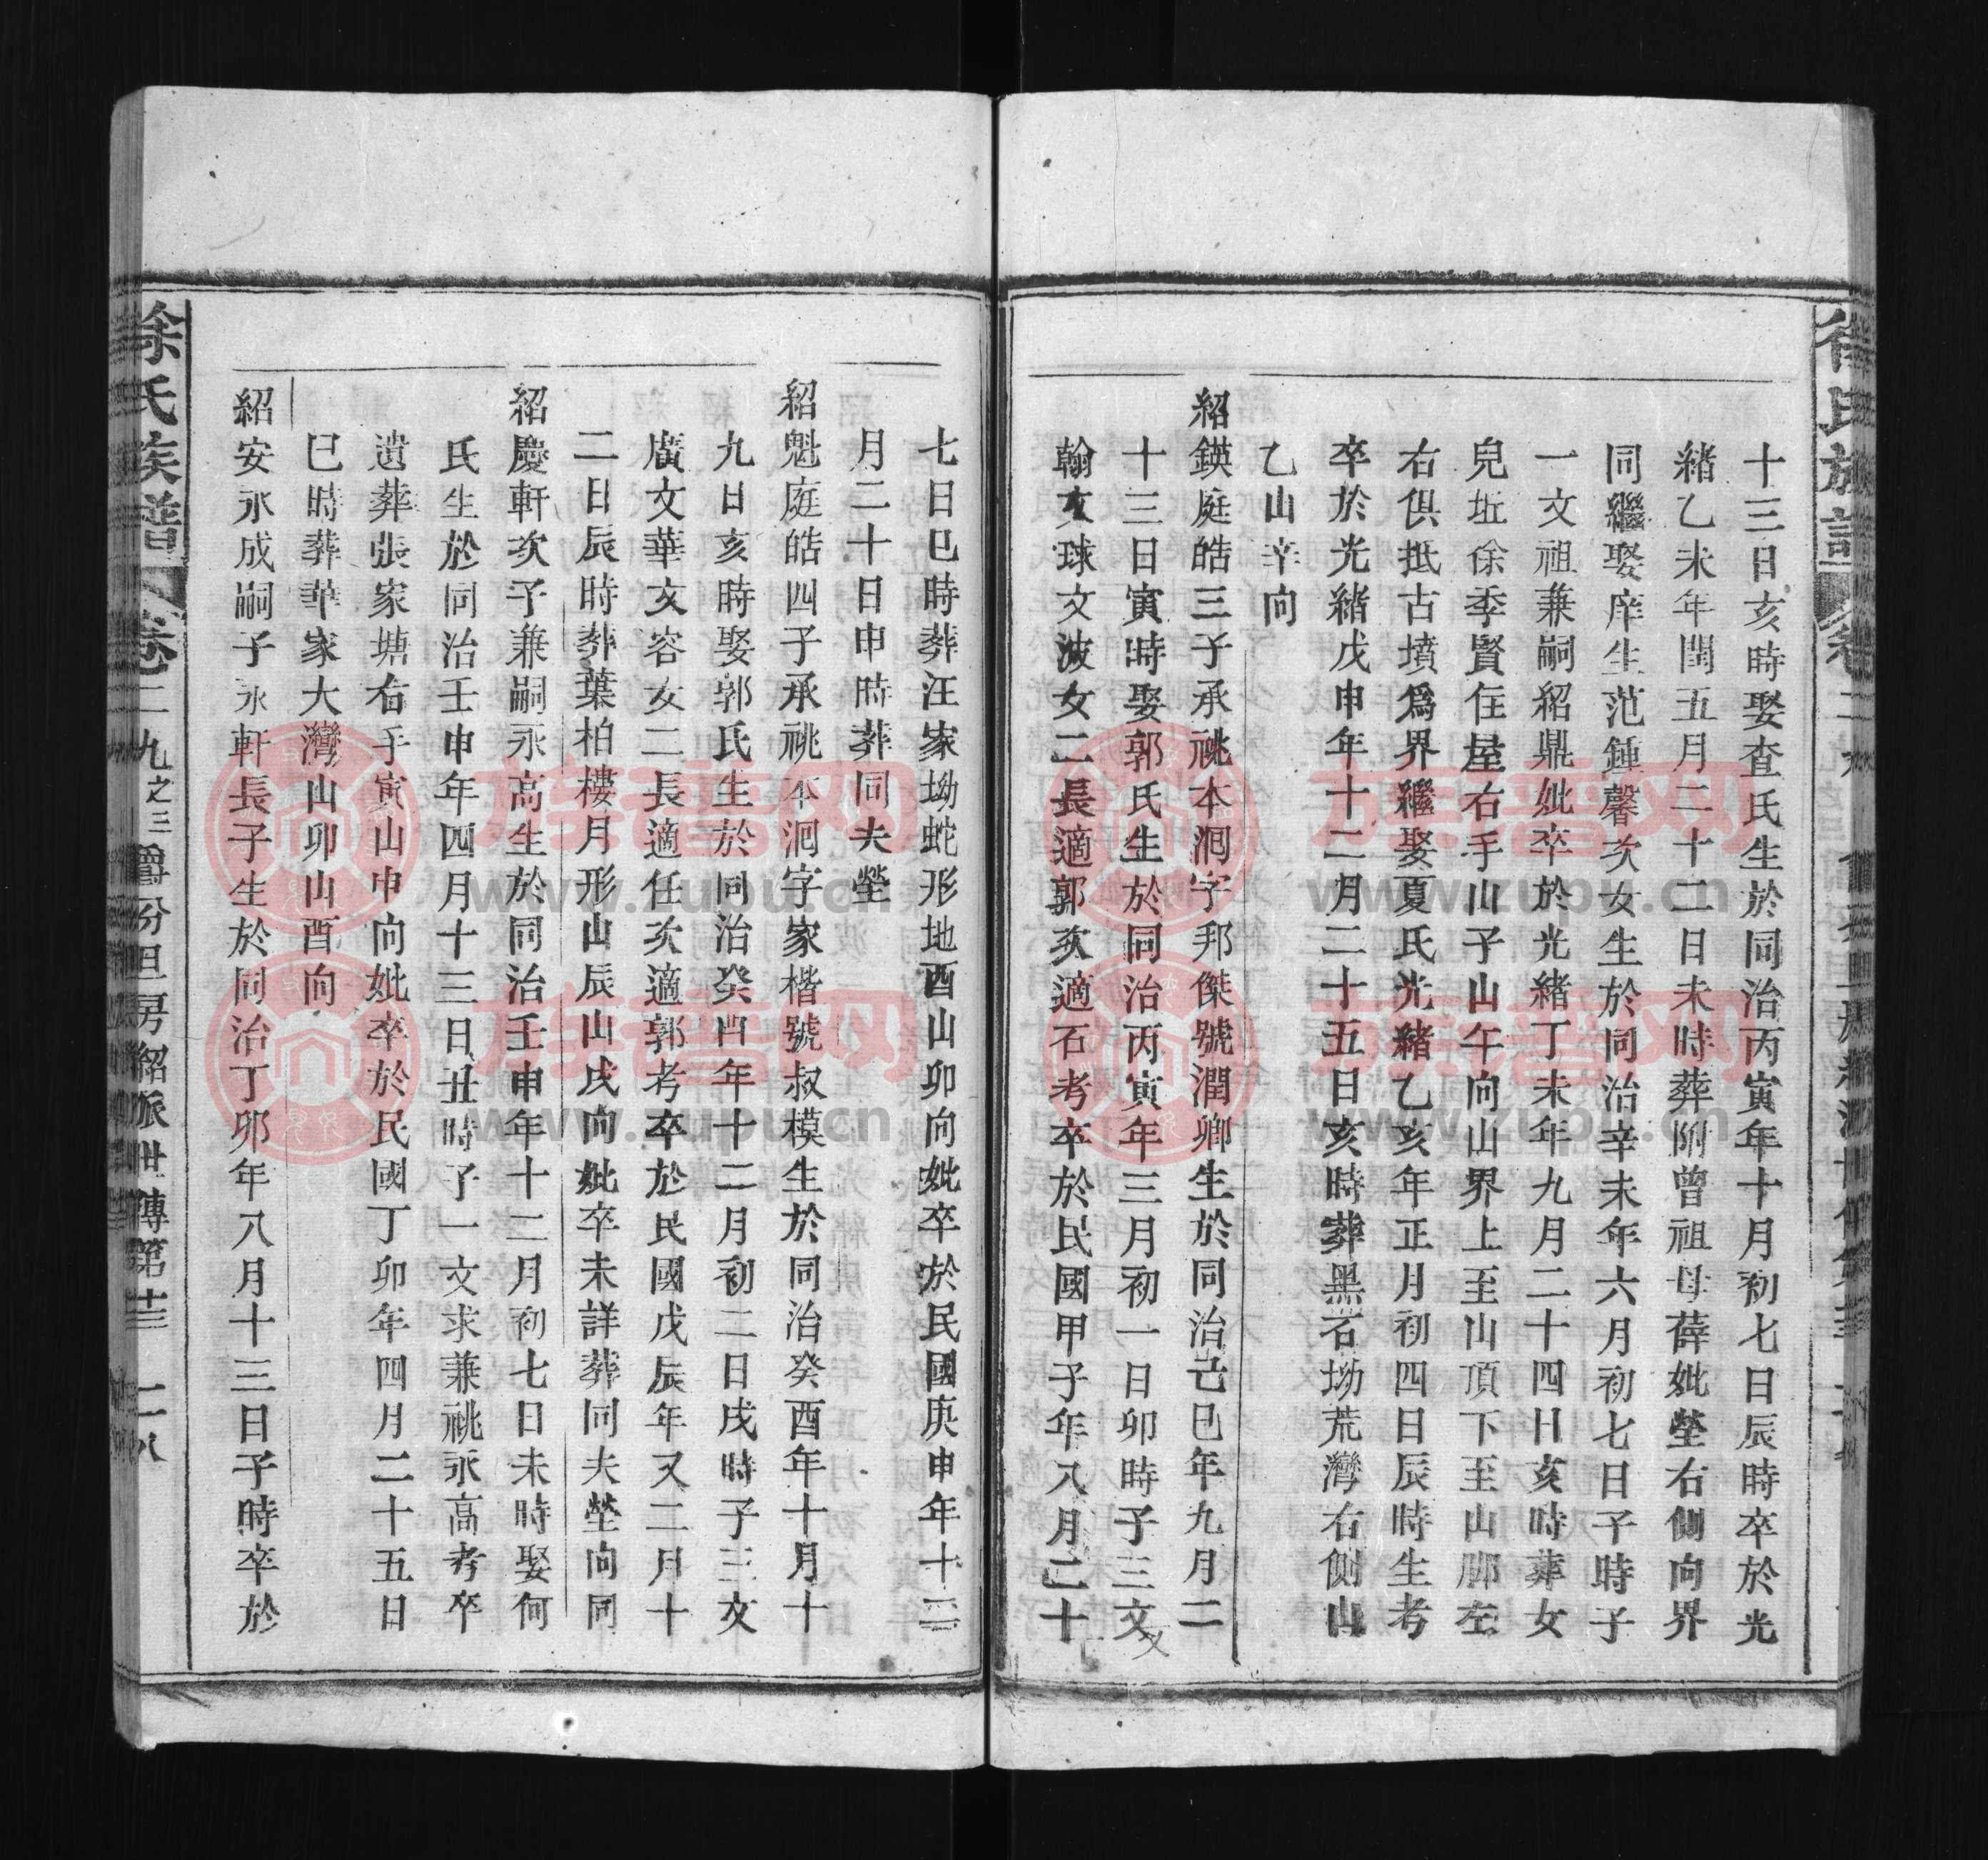 徐氏族譜
十三日亥時娶查氏生於同治丙寅年十月初七日辰時卒於光
緒乙未年閏五月二十二日未時葬附曾祖母薛妣塋右側向界
同繼娶庠生范鍾馨次女生於同治辛未年六月初七日子時子
一文祖兼嗣紹鼎妣卒於光緒丁未年九月二十四日亥時葬女
兒坵徐季賢住屋右手山子山午向山界上至山頂下至山腳左
右俱抵古墳爲界繼娶夏氏光緒乙亥年正月初四日辰時生考
卒於光緒戊申年十二月二十五日亥時葬黑石坳荒灣右側山
乙山辛向
紹鍈庭皓三子承祧本泂字邦傑號潤卿生於同治己巳年九月二
十三日寅時娶郭氏生於同治丙寅年三月初一日卯時子三文
翰文球文波女二長適郭次適石考卒於民國甲子年八月二十
七日巳時葬汪家坳蛇形地酉山卯向妣卒於民國庚申年十二
月二十日申時葬同夫塋
紹魁庭皓四子承祧本泂字家楷號叔模生於同治癸酉年十月十
九日亥時娶郭氏生於同治癸酉年十二月初二日戌時子三文
廣文華文容女二長適任次適郭考卒於民國戊辰年又二月十
二日辰時葬葉柏樓月形山辰山戌向妣卒未詳葬同夫塋向同
紹慶軒次子兼嗣永高生於同治壬申年十二月初七日未時娶何
氏生於同治壬申年四月十三日丑時子一文求兼祧永高考卒
遺葬張家塘右手寅山申向妣卒於民國丁卯年四月二十五日
巳時葬華家大灣山卯山酉向
紹安永成嗣子永軒長子生於同治丁卯年八月十三日子時卒於
徐氏族譜 卷二 九之三 爵份旦房紹派世傳第卄三 二八
族譜网
www.zupu.cn
族譜网
www.zupu.cn
族譜网
www.zupu.cn
族譜网
www.zupu.cn